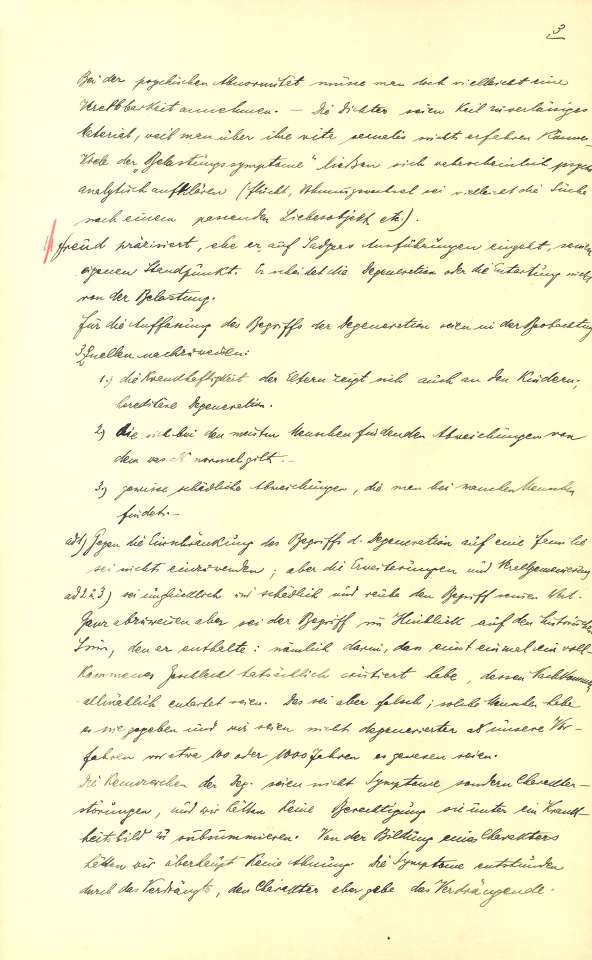 3
Bei der psychischen Abnormität müsse man doch vielleicht eine
Vererbbarkeit annehmen. — Die Dichter seien kein zuverlässiges
Material, weil man über ihre vita sexualis nichts erfahren könne.
Viele der „Belastungssymptome“ ließen sich wahrscheinlich psycho
analytisch aufklären (Flucht, Wohnungswechsel sei vielleicht die Suche
nach einem passenden Liebesobjekt etc.).
Freud präzisiert, ehe er auf Sadgers Ausführungen eingeht, seinen
eigenen Standpunkt. Er scheidet die Degeneration oder die Entartung nicht
von der Belastung.
Für die Auffassung des Begriffs der Degeneration seien in der Beobachtung
3 Quellen nachzuweisen:
1.) die Krankhaftigkeit der Eltern zeigt sich auch an den Kindern;
hereditäre Degeneration.
2.) die sich bei den meisten Menschen findenden Abweichungen von
dem was als normal gilt. –
3.) gewisse schädliche Abweichungen, die man bei manchen Menschen
findet. –
ad 1) Gegen die Einschränkung des Begriffs d. Degeneration auf eine Familie
sei nichts einzuwenden; aber die Erweiterungen und Verallgemeinerung
ad 2 & 3) sei schädlich und raube den Begriff seinen Wert.
Ganz abzuweisen aber sei der Begriff im Hinblick auf den historischen
Sinn, den er enthalte: nämlich darin, dass einst einmal ein voll-
kommenes Geschlecht tatsächlich existiert habe, dessen Nachkommen
allmählich entartet seien. Das sei aber falsch; solche Menschen habe
es nie gegeben und wir seien nicht degenerierter als unsere Vor-
fahren vor etwa 100 oder 1000 Jahren es gewesen seien.
Die Kennzeichen der Deg. seien nicht Symptome sondern Charakter-
störungen, und wir hätten keine Berechtigung sie unter ein Krank-
heitsbild zu subsummieren. Von der Bildung eines Charakters
hätten wir überhaupt keine Ahnung. Die Symptome entstünden
durch das Verdrängte, den Charakter aber gebe das Verdrängende.